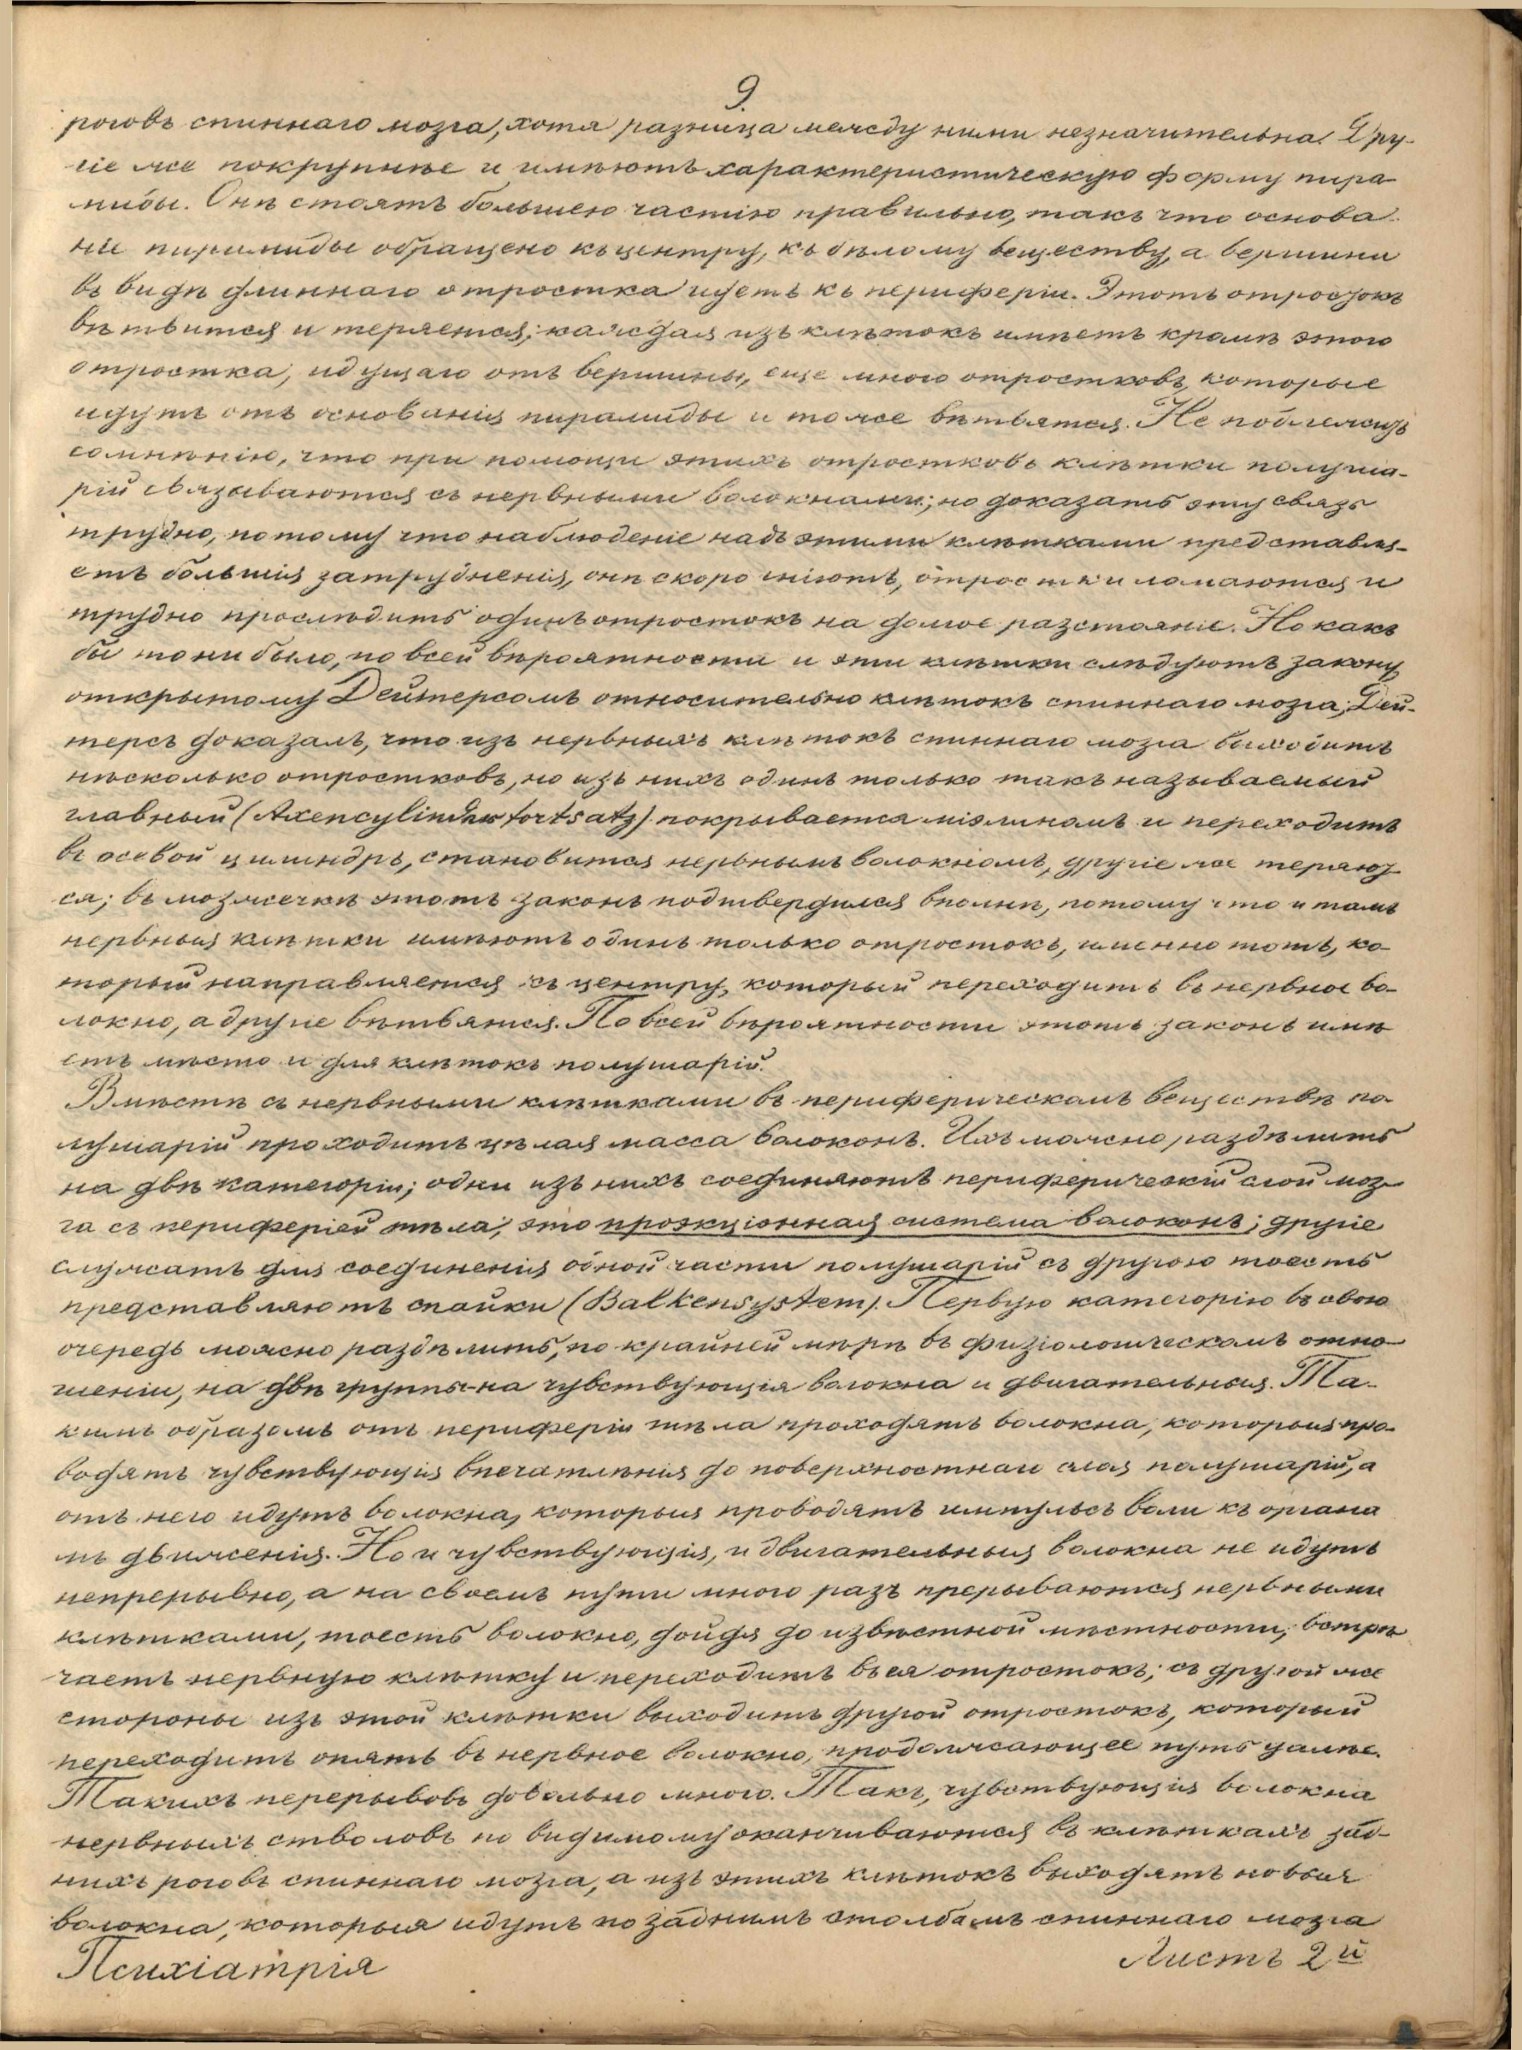 9.
роговъ спиннаго мозга, хотя разница между ними незначительна. Дру-
гіе же покрупнѣе и имѣютъ характеристическую форму пира
миды. Онѣ стоятъ большею частію правильно, такъ что основа-
ніе пирамиды обращено къ центру, къ бѣлому веществу, а вершина
въ видѣ длиннаго отростка идетъ къ периферіи. Этотъ отростокъ
вѣтвится и теряется; каждая изъ клѣтокъ имѣетъ кромѣ этого
отростка, идущаго отъ вершины, еще много отростковъ, которые
идутъ отъ основанія пирамиды и тоже вѣтвятся. Не подлежитъ
сомнѣнію, что при помощи этихъ отростковъ клѣтки полуша-
рій связываются съ нервными волокнами; но доказать эту связь
трудно, потому что наблюденіе надъ этими клѣтками представля-
етъ большія затрудненія, онѣ скоро гніютъ, отростки ломаются и
трудно прослѣдить одинъ отростокъ на долгое разстояніе. Но какъ
бы то ни было, по всей вѣроятности и эти клѣтки слѣдуютъ закону
открытому Дейтерсомъ относительно клѣтокъ спиннаго мозга; Дей-
терсъ доказалъ, что изъ нервныхъ клѣтокъ спиннаго мозга выходитъ
нѣсколько отростковъ, но изъ нихъ одинъ только такъ называемый
главный (Axencylinderfortsatz) покрывается міэлиномъ и переходитъ
въ осевой цилиндръ, становится нервнымъ волокномъ, другіе же теряют
ся; въ мозжечкѣ этотъ законъ подтвердился вполнѣ, потому что и тамъ
нервныя клѣтки имѣютъ одинъ только отростокъ, именно тотъ, ко-
торый направляется къ центру, который переходитъ въ нервное во-
локно, а другіе вѣтвятся. По всей вѣроятности этотъ законъ имѣ
етъ мѣсто и для клѣтокъ полушарій.
Вмѣстѣ съ нервными клѣтками въ периферическомъ веществѣ по-
лушарій проходитъ цѣлая масса волоконъ. Ихъ можно раздѣлить
на двѣ категоріи; одни изъ нихъ соединяютъ периферическій слой моз-
га съ периферіей тѣла, это проэкціонная система волоконъ; другіе
служатъ для соединенія одной части полушарій съ другою тоесть
представляютъ спайки (Balkensystem). Первую категорію въ свою
очередь можно раздѣлить, по крайней мѣрѣ въ физіологическомъ отно-
шеніи, на двѣ группы-на чувствующія волокна и двигательныя. Та-
кимъ образомъ отъ периферіи тѣла проходятъ волокна, которыя про-
водятъ чувствующія впечатлѣнія до поверхностнаго слоя полушарій, а
отъ него идутъ волокна, которыя проводятъ импульсъ воли къ органа
мъ движенія. Но и чувствующія, и двигательныя волокна не идутъ
непрерывно, а на своемъ пути много разъ прерываются нервными
клѣтками, тоесть волокно, дойдя до извѣстной мѣстности, встрѣ
чаетъ нервную клѣтку и переходитъ въ ея отростокъ; съ другой же
стороны изъ этой клѣтки выходитъ другой отростокъ, который
переходитъ опять въ нервное волокно, продолжающее путь далѣе.
Такихъ перерывовъ довольно много. Такъ, чувствующія волокна
нервныхъ стволовъ по видимому оканчиваются въ клѣткахъ зад-
нихъ роговъ спиннаго мозга, а изъ этихъ клѣтокъ выходятъ новыя
волокна, которыя идутъ по заднимъ столбамъ спиннаго мозга
Психіатрія Листъ 2й